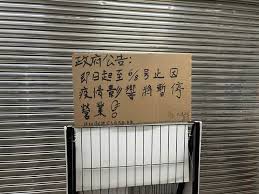 政府公告:
即日起至6/8号止因
疫情影響將暫停
營業